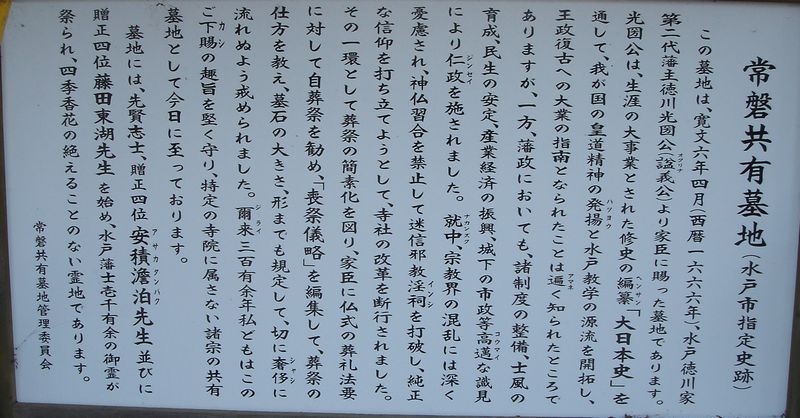 常磐共有墓地(水戸市指定史跡)
この墓地は、寛文六年四月(西暦一六六六年)、水戸徳川家
第二代藩主徳川光圀公(諡義公)より家臣に賜った墓地であります。
光圀公は、生涯の大事業とされた修史の編纂「大日本史」を
通して、我が国の皇道精神の発揚と水戸教学の源流を開拓し、
王政復古への大業の指南となられたことは遍く知られたところで
ありますが、一方、藩政においても、諸制度の整備、士風の
育成、民生の安定、産業経済の振興、城下の市政等高邁な識見
により仁政を施されました。就中、宗教界の混乱には深く
憂慮され、神仏習合を禁止して迷信邪教淫祠を打破し、純正
な信仰を打ち立てようとして、寺社の改革を断行されました。
その一環として葬祭の簡素化を図り、家臣に仏式の葬礼法要
に対して自葬祭を勧め、「喪祭儀略」を編集して、葬祭の
仕方を教え、墓石の大きさ、形までも規定して、切に奢侈に
流れぬよう戒められました。爾来三百有余年私どもはこの
ご下賜の趣旨を堅く守り、特定の寺院に属さない諸宗の共有
墓地として今日に至っております。
墓地には、先賢志士、贈正四位安積澹泊先生並びに
贈正四位藤田東湖先生を始め、水戸藩士壱千有余の御霊が
祭られ、四季香花の絶えることのない霊地であります。
常磐共有墓地管理委員会